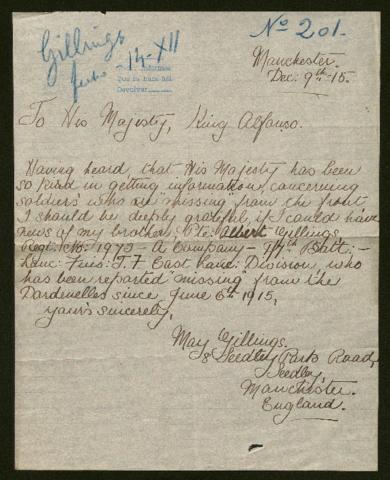 Gillings
14-XII
Nº 201.
Manchester.
Dec: 9th-15.
Devolver
To His Majesty, King Alfonso.
Having heard, that His Majesty has been
so kind in getting "information", concerning
soldiers' who are "missing" from the front
I should be deeply grateful, if I could have
news of my brother, Pte: Albert Gillings,
Regt: No: 1973 - A Company -
Lanc: Fus: T.F East Lanc: Division, who
has been reported "missing" from the
Dardenelles since June 6th 1915,
yours sincerely,
May Gillings.
8 Seedley Park Road,
Seedley,
Manchester.
England.